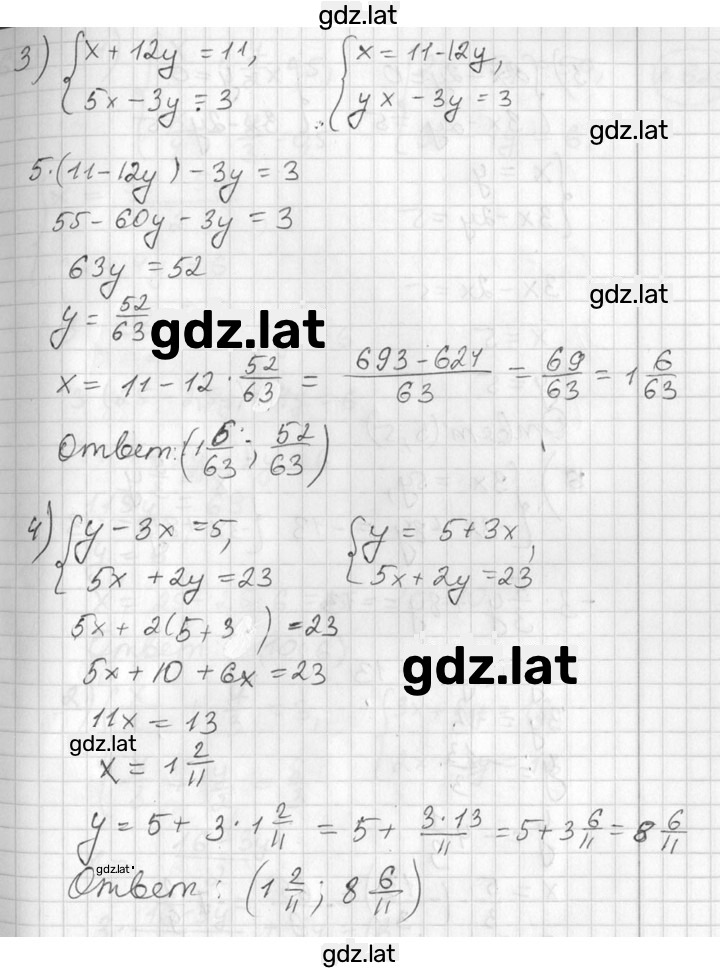 gdz.lat
3) { x + 12y = 11, { x = 11 - 12y,
5x - 3y = 3 yx - 3y = 3
gdz.lat
5·(11 - 12y) - 3y = 3
55 - 60y - 3y = 3
63y = 52
gdz.lat
y = 52/63
gdz.lat
x = 11 - 12 · 52/63 = (693 - 624)/63 = 69/63 = 1 6/63
Ответ: (1 6/63; 52/63)
4) { y - 3x = 5, { y = 5 + 3x,
5x + 2y = 23 5x + 2y = 23
5x + 2(5 + 3 ) = 23
5x + 10 + 6x = 23
gdz.lat
11x = 13
gdz.lat
x = 1 2/11
y = 5 + 3 · 1 2/11 = 5 + (3·13)/11 = 5 + 3 6/11 = 8 6/11
gdz.lat
Ответ: (1 2/11; 8 6/11)
gdz.lat